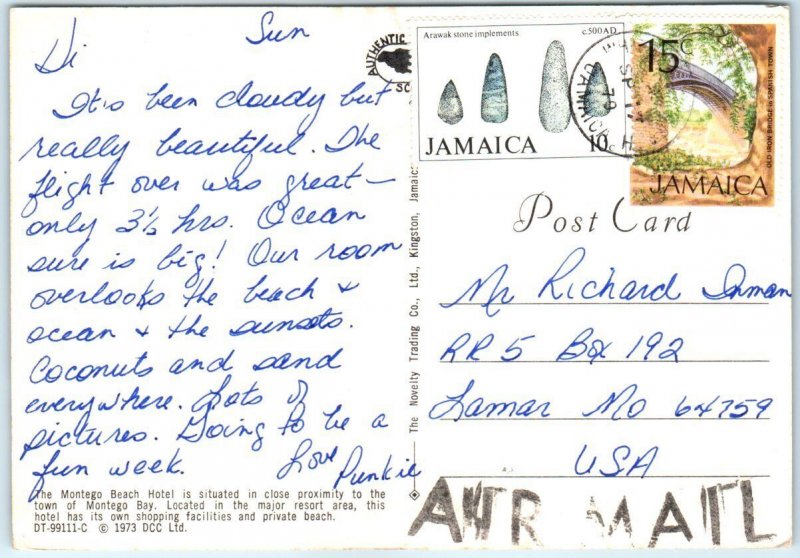 Sun
Hi
It's been cloudy but
really beautiful. The
flight over was great—
only 3½ hrs. Ocean
sure is big! Our room
overlooks the beach +
ocean + the sunsets.
Coconuts and sand
everywhere. Lots of
pictures. Going to be a
fun week.
Love Punkie
The Montego Beach Hotel is situated in close proximity to the
town of Montego Bay. Located in the major resort area, this
hotel has its own shopping facilities and private beach.
DT-99111-C © 1973 DCC Ltd.
AUTHENTIC
The Novelty Trading Co., Ltd., Kingston, Jamaica
Arawak stone implements c.500AD
JAMAICA 10c
15c
OLD IRON BRIDGE in SPANISH TOWN
JAMAICA
Post Card
Mr Richard Inman
RR 5 Box 192
Lamar Mo 64759
USA
AIR MAIL